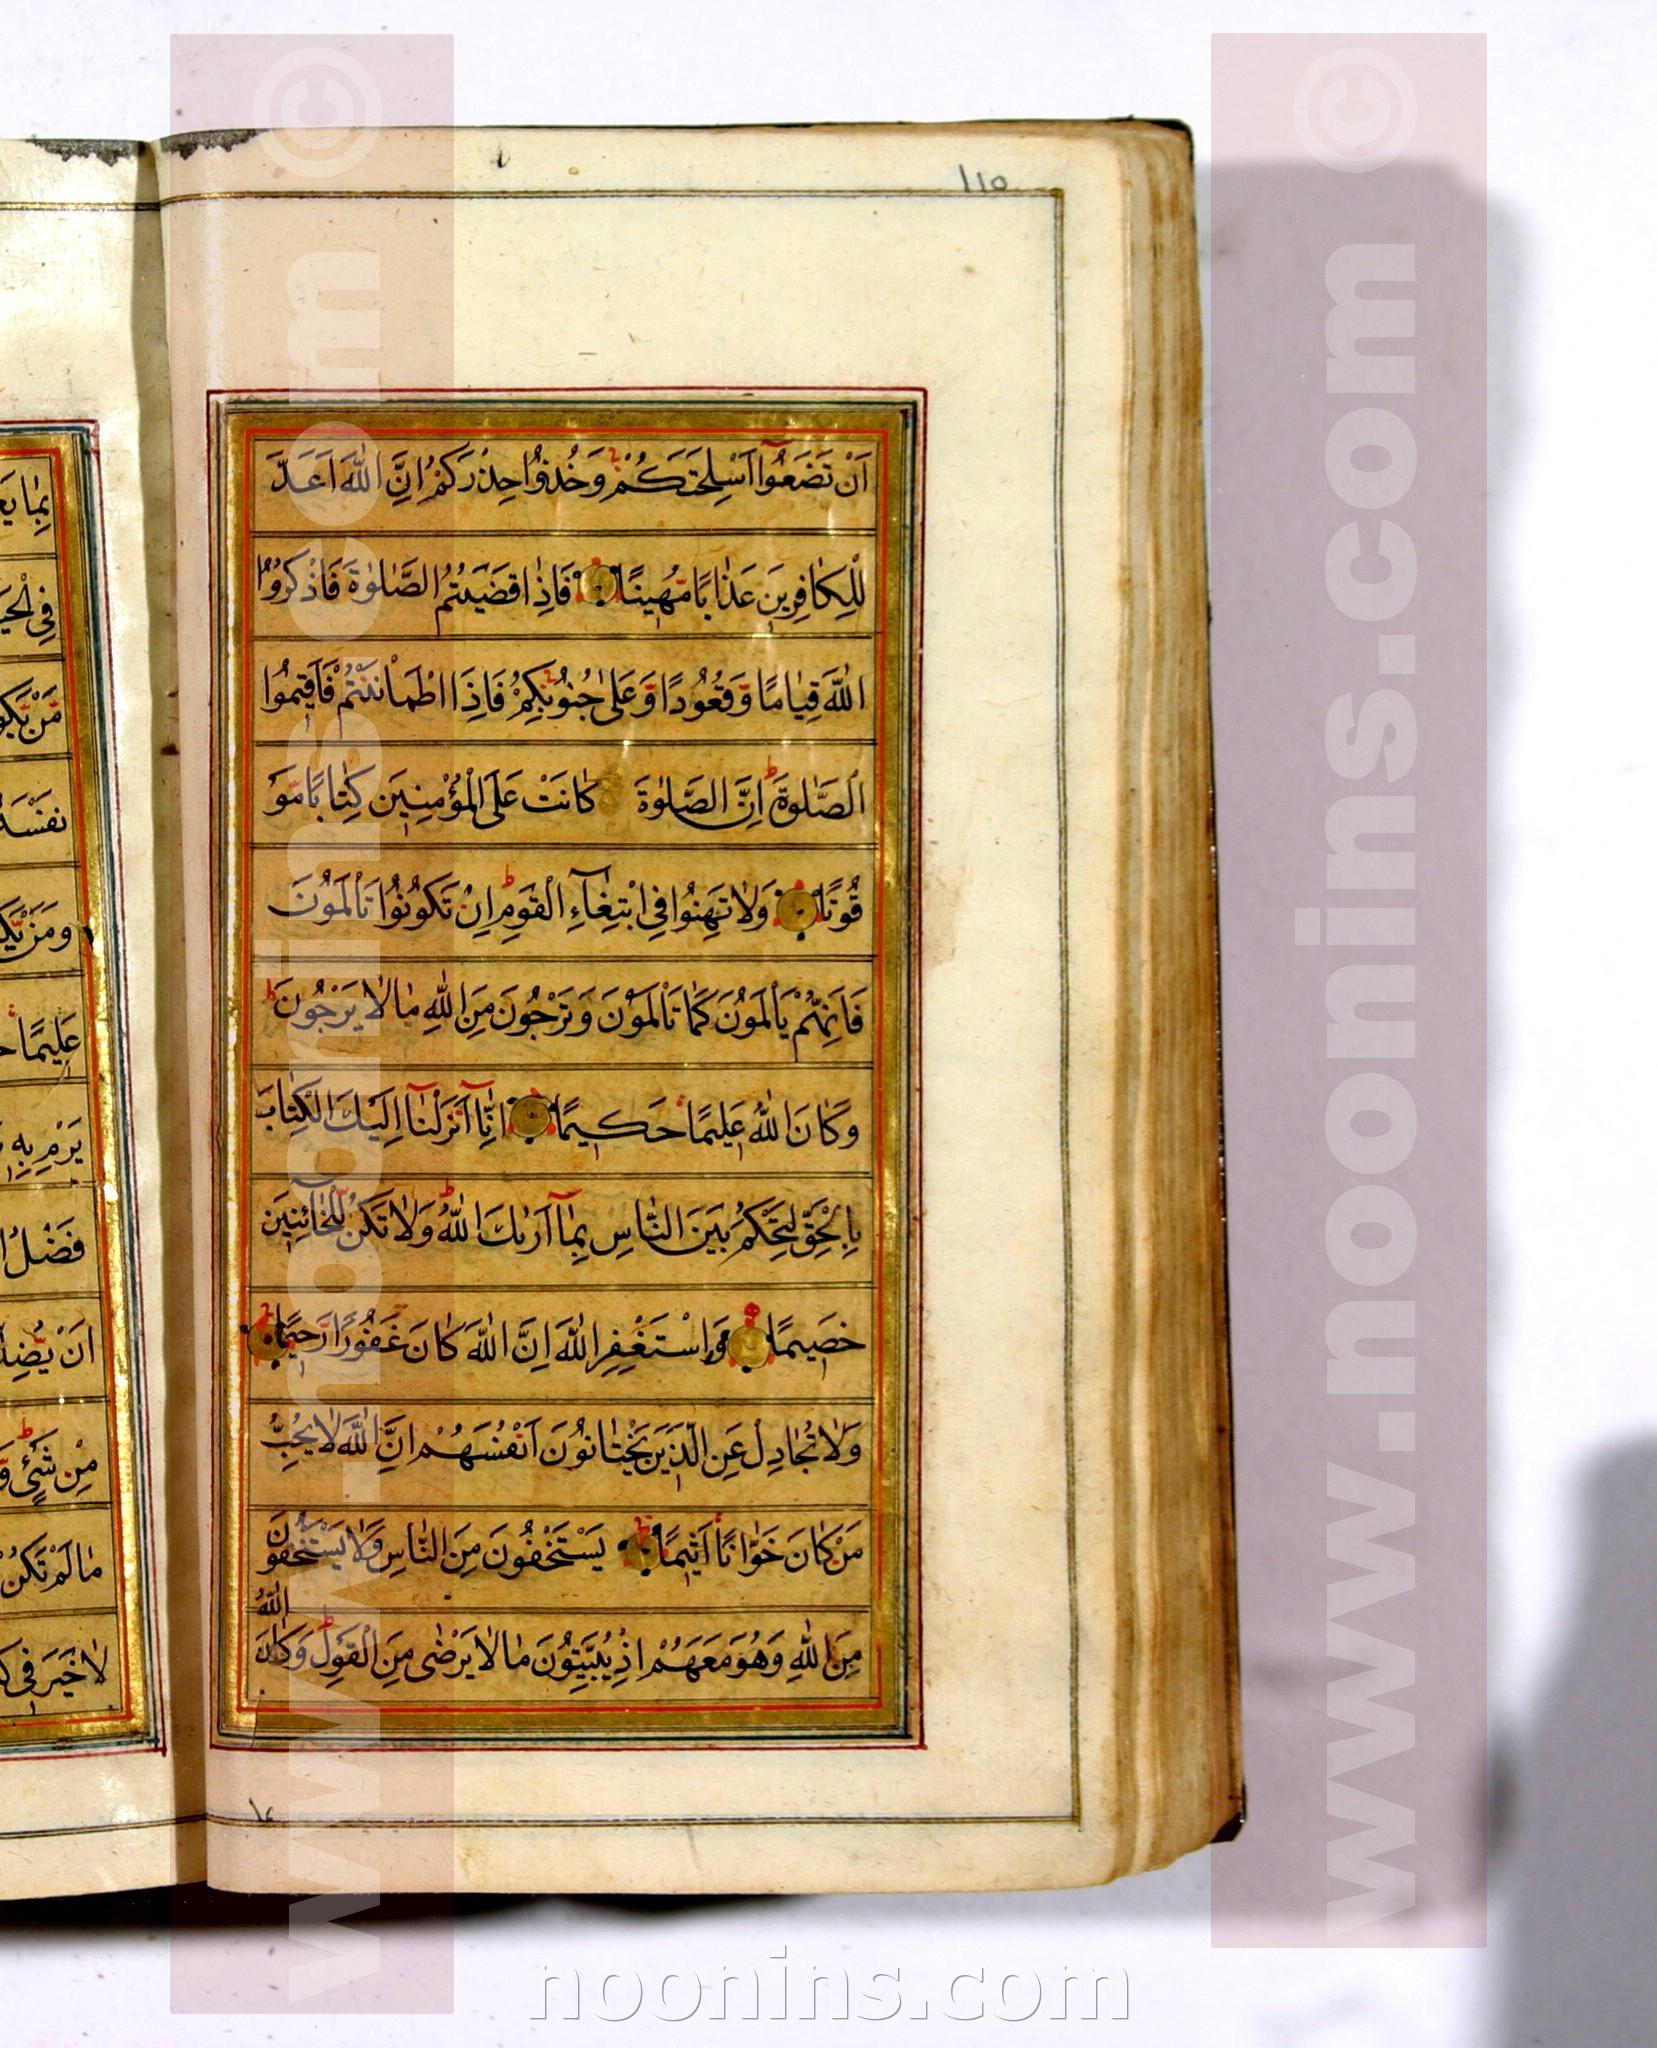 ١١٥
اَنْ تَضَعُوٓا اَسْلِحَتَكُمْ وَخُذُوا حِذْرَكُمْ اِنَّ اللّٰهَ اَعَدَّ
لِلْكٰافِرِينَ عَذٰابًا مُهِينًا فَاِذٰا قَضَيْتُمُ الصَّلٰوةَ فَاذْكُرُوا
اللّٰهَ قِيٰامًا وَقُعُودًا وَعَلىٰ جُنُوبِكُمْ فَاِذَا اطْمَاْنَنْتُمْ فَاَقِيمُوا
الصَّلٰوةَ اِنَّ الصَّلٰوةَ كٰانَتْ عَلَى الْمُؤْمِنِينَ كِتٰابًا مَوْ
قُوتًا وَلٰا تَهِنُوا فِي ابْتِغٰٓاءِ الْقَوْمِ اِنْ تَكُونُوا تَاْلَمُونَ
فَاِنَّهُمْ يَاْلَمُونَ كَمٰا تَاْلَمُونَ وَتَرْجُونَ مِنَ اللّٰهِ مٰا لٰا يَرْجُونَ
وَكٰانَ اللّٰهُ عَلِيمًا حَكِيمًا اِنّٰٓا اَنْزَلْنٰٓا اِلَيْكَ الْكِتٰابَ
بِالْحَقِّ لِتَحْكُمَ بَيْنَ النّٰاسِ بِمٰٓا اَرٰىكَ اللّٰهُ وَلٰا تَكُنْ لِلْخٰٓائِنِينَ
خَصِيمًا وَاسْتَغْفِرِ اللّٰهَ اِنَّ اللّٰهَ كٰانَ غَفُورًا رَحِيمًا
وَلٰا تُجٰادِلْ عَنِ الَّذِينَ يَخْتٰانُونَ اَنْفُسَهُمْ اِنَّ اللّٰهَ لٰا يُحِبُّ
مَنْ كٰانَ خَوّٰانًا اَثِيمًا يَسْتَخْفُونَ مِنَ النّٰاسِ وَلٰا يَسْتَخْفُونَ
مِنَ اللّٰهِ وَهُوَ مَعَهُمْ اِذْ يُبَيِّتُونَ مٰا لٰا يَرْضٰى مِنَ الْقَوْلِ وَكٰانَ اللّٰهُ
بِمٰا
فِي
مَنْ
نَفْسَهُ
وَمَنْ
عَلِيمًا
يَرْمِ بِهِ
فَضْلُ
اَنْ
مِنْ شَيْءٍ
مٰا لَمْ تَكُنْ
لٰا خَيْرَ فِي
www.noonins.com ©
www.noonins.com ©
noonins.com